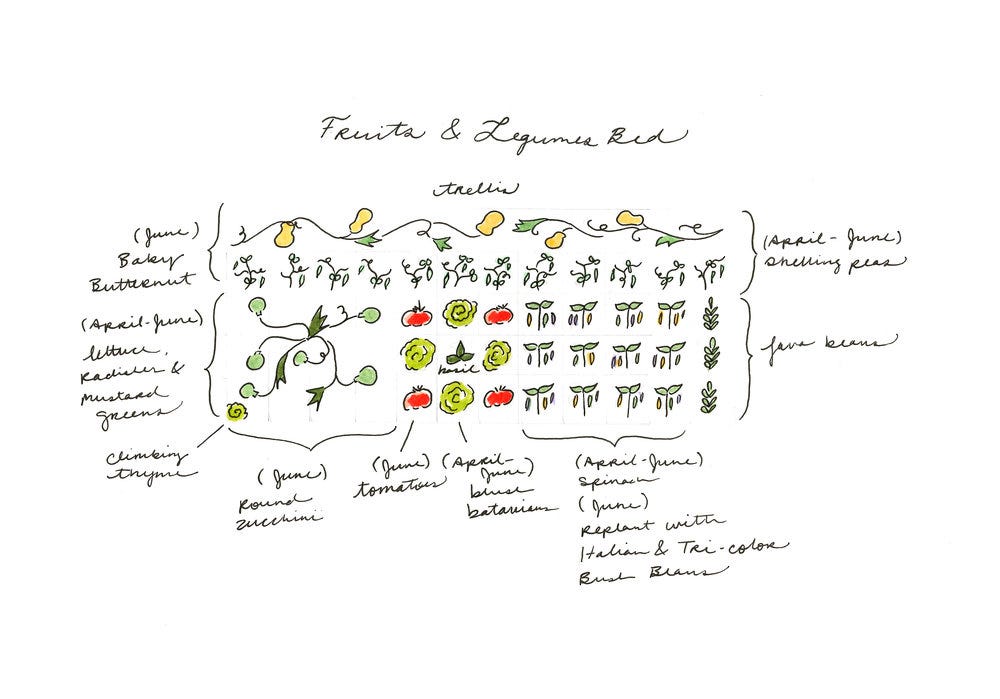 Fruits & Legumes Bed
trellis
(June)
Baby
Butternut
(April-June)
Shelling peas
(April-June)
lettuce,
Radishes &
mustard
greens
fava beans
basil
climbing
thyme
(June)
Round
zucchini
(June)
tomatoes
(April-
June)
blush
batavians
(April-June)
Spinach
(June)
Replant with
Italian & Tri-color
Bush Beans